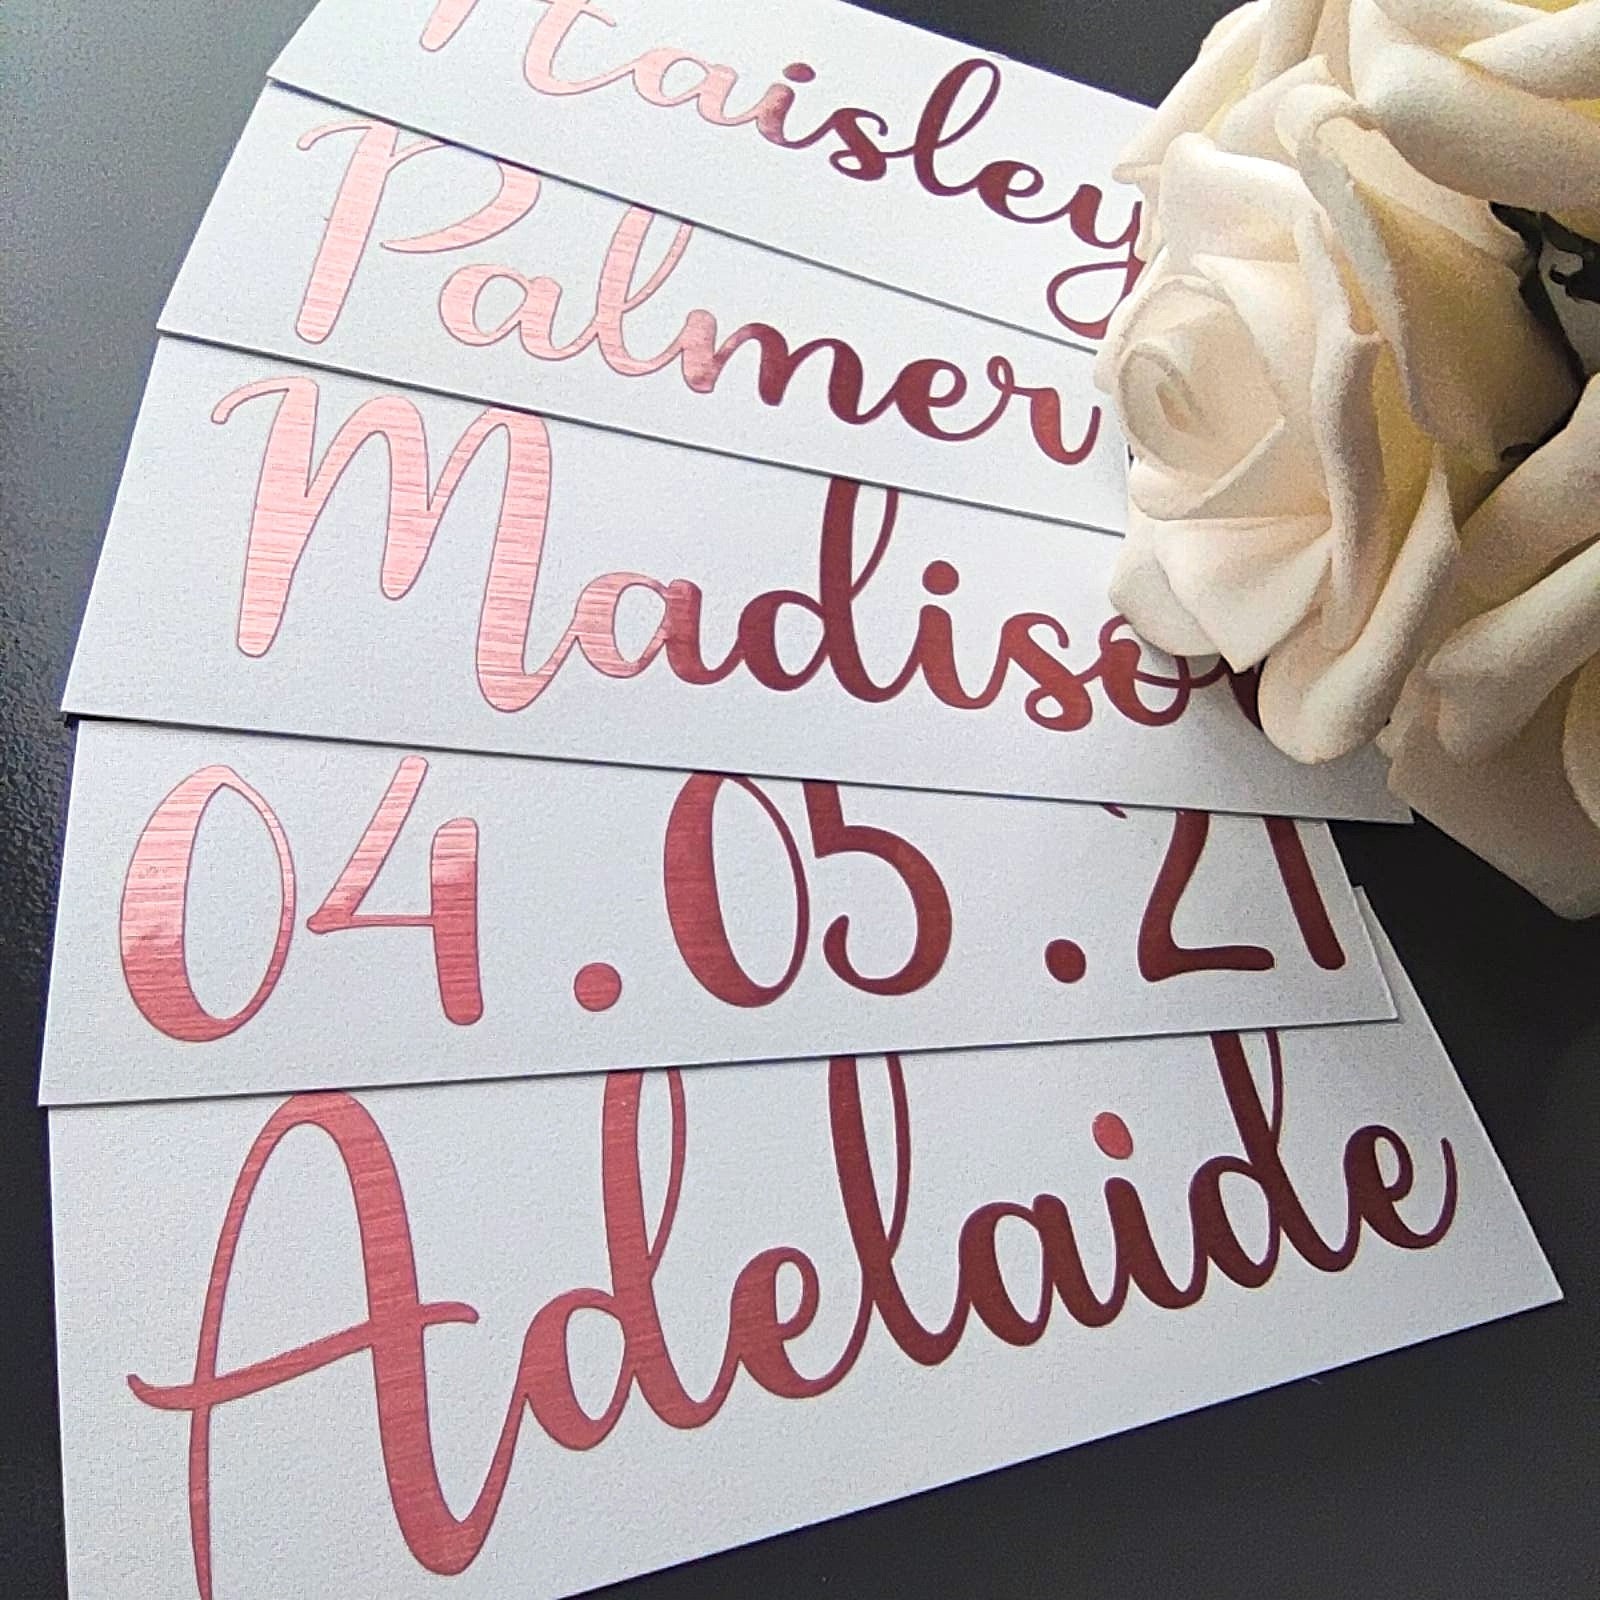 Haisley
Palmer
Madiso
04.05.21
Adelaide